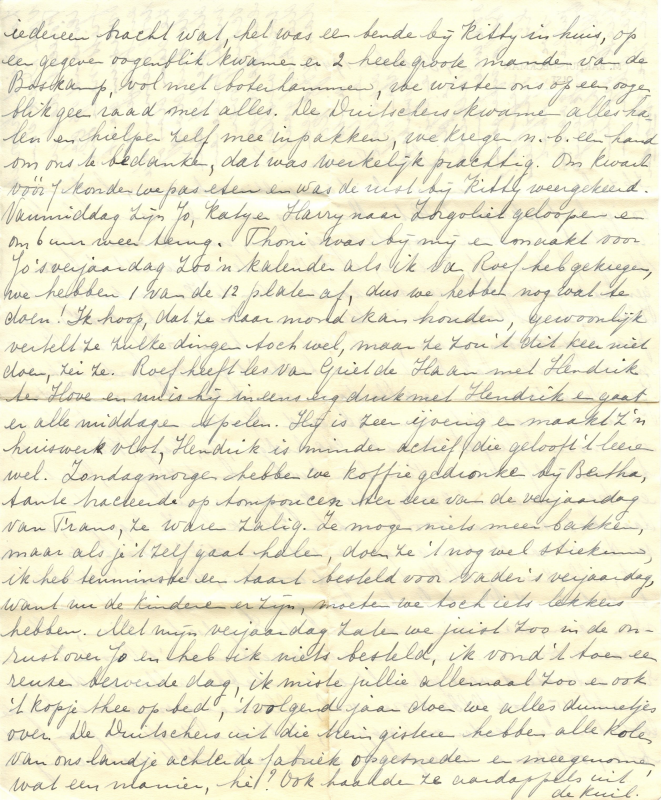 iedereen bracht wat, het was een bende bij Kitty in huis, op
een gegeven oogenblik kwamen er 2 heele groote manden van de
Boskamp, vol met boterhammen, we wisten ons op een oogen
blik geen raad met alles. De Duitschers kwamen alles ha-
len en hielpen zelf mee inpakken, we kregen n.b. een hand
om ons te bedanken, dat was werkelijk prachtig. Om kwart
vóór 7 konden we pas eten en was de rust bij Kitty weergekeerd.
Vanmiddag zijn Jo, Katy en Harry naar Zorgvliet geloopen en
om 6 uur weer terug. Thoni was bij mij en maakt voor
Jo's verjaardag zoo'n kalender als ik van Roef heb gekregen,
we hebben 1 van de 12 platen af, dus we hebben nog wat te
doen! Ik hoop, dat ze haar mond kan houden, gewoonlijk
vertelt ze zulke dingen toch wel, maar ze zou 't dit keer niet
doen, zei ze. Roef heeft les van Griet de Haan met Hendrik
ten Hove en nu is hij ineens erg druk met Hendrik en gaat
er alle middagen spelen. Hij is zeer ijverig en maakt z'n
huiswerk vlot, Hendrik is minder actief, die gelooft 't leeren
wel. Zondagmorgen hebben we koffie gedronken bij Bertha,
tante tracteerde op tompoucen ter eere van de verjaardag
van Frans, ze waren zalig. Ze mogen niets meer bakken,
maar als je 't zelf gaat halen, doen ze 't nog wel stiekum,
ik heb tenminste een taart besteld voor vader's verjaardag,
want nu de kinderen er zijn, moeten we toch iets lekkers
hebben. Met mijn verjaardag zaten we juist zoo in de on-
rust over Jo en heb ik niets besteld, ik vond 't toen een
reuse beroerde dag, ik miste jullie allemaal zoo en ook
't kopje thee op bed, 't volgend jaar doen we alles dunnetjes
over. De Duitschers uit die trein gisteren hebben alle kolen
van ons landje achter de fabriek opgesneden en meegenomen
wat een manier, hè? Ook haalden ze aardappels uit
de kuil.